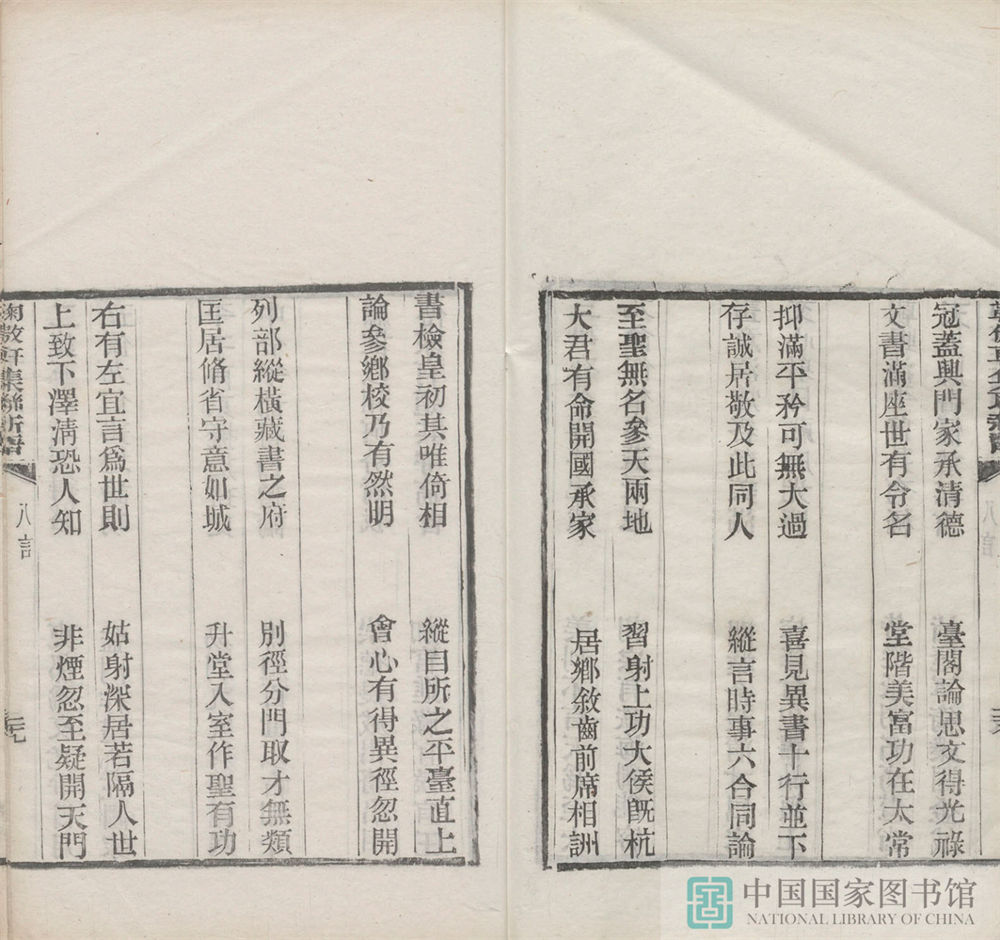 冠蓋興門家承清德 臺閣論思文得光祿
文書滿座世有令名 堂階美富功在太常
抑滿平矜可無大過 喜見異書十行並下
存誠居敬及此同人 縱言時事六合同論
至聖無名參天兩地 習射上功大侯旣杭
大君有命開國承家 居鄉敘齒前席相詶
書檢皇初其唯倚相 縱目所之平臺直上
論參鄉校乃有然明 會心有得異徑忽開
列部縱橫藏書之府 別徑分門取才無類
匡居脩省守意如城 升堂入室作聖有功
右有左宜言爲世則 姑射深居若隔人世
上致下澤淸恐人知 非煙忽至疑開天門
八言
中国国家图书馆
NATIONAL LIBRARY OF CHINA